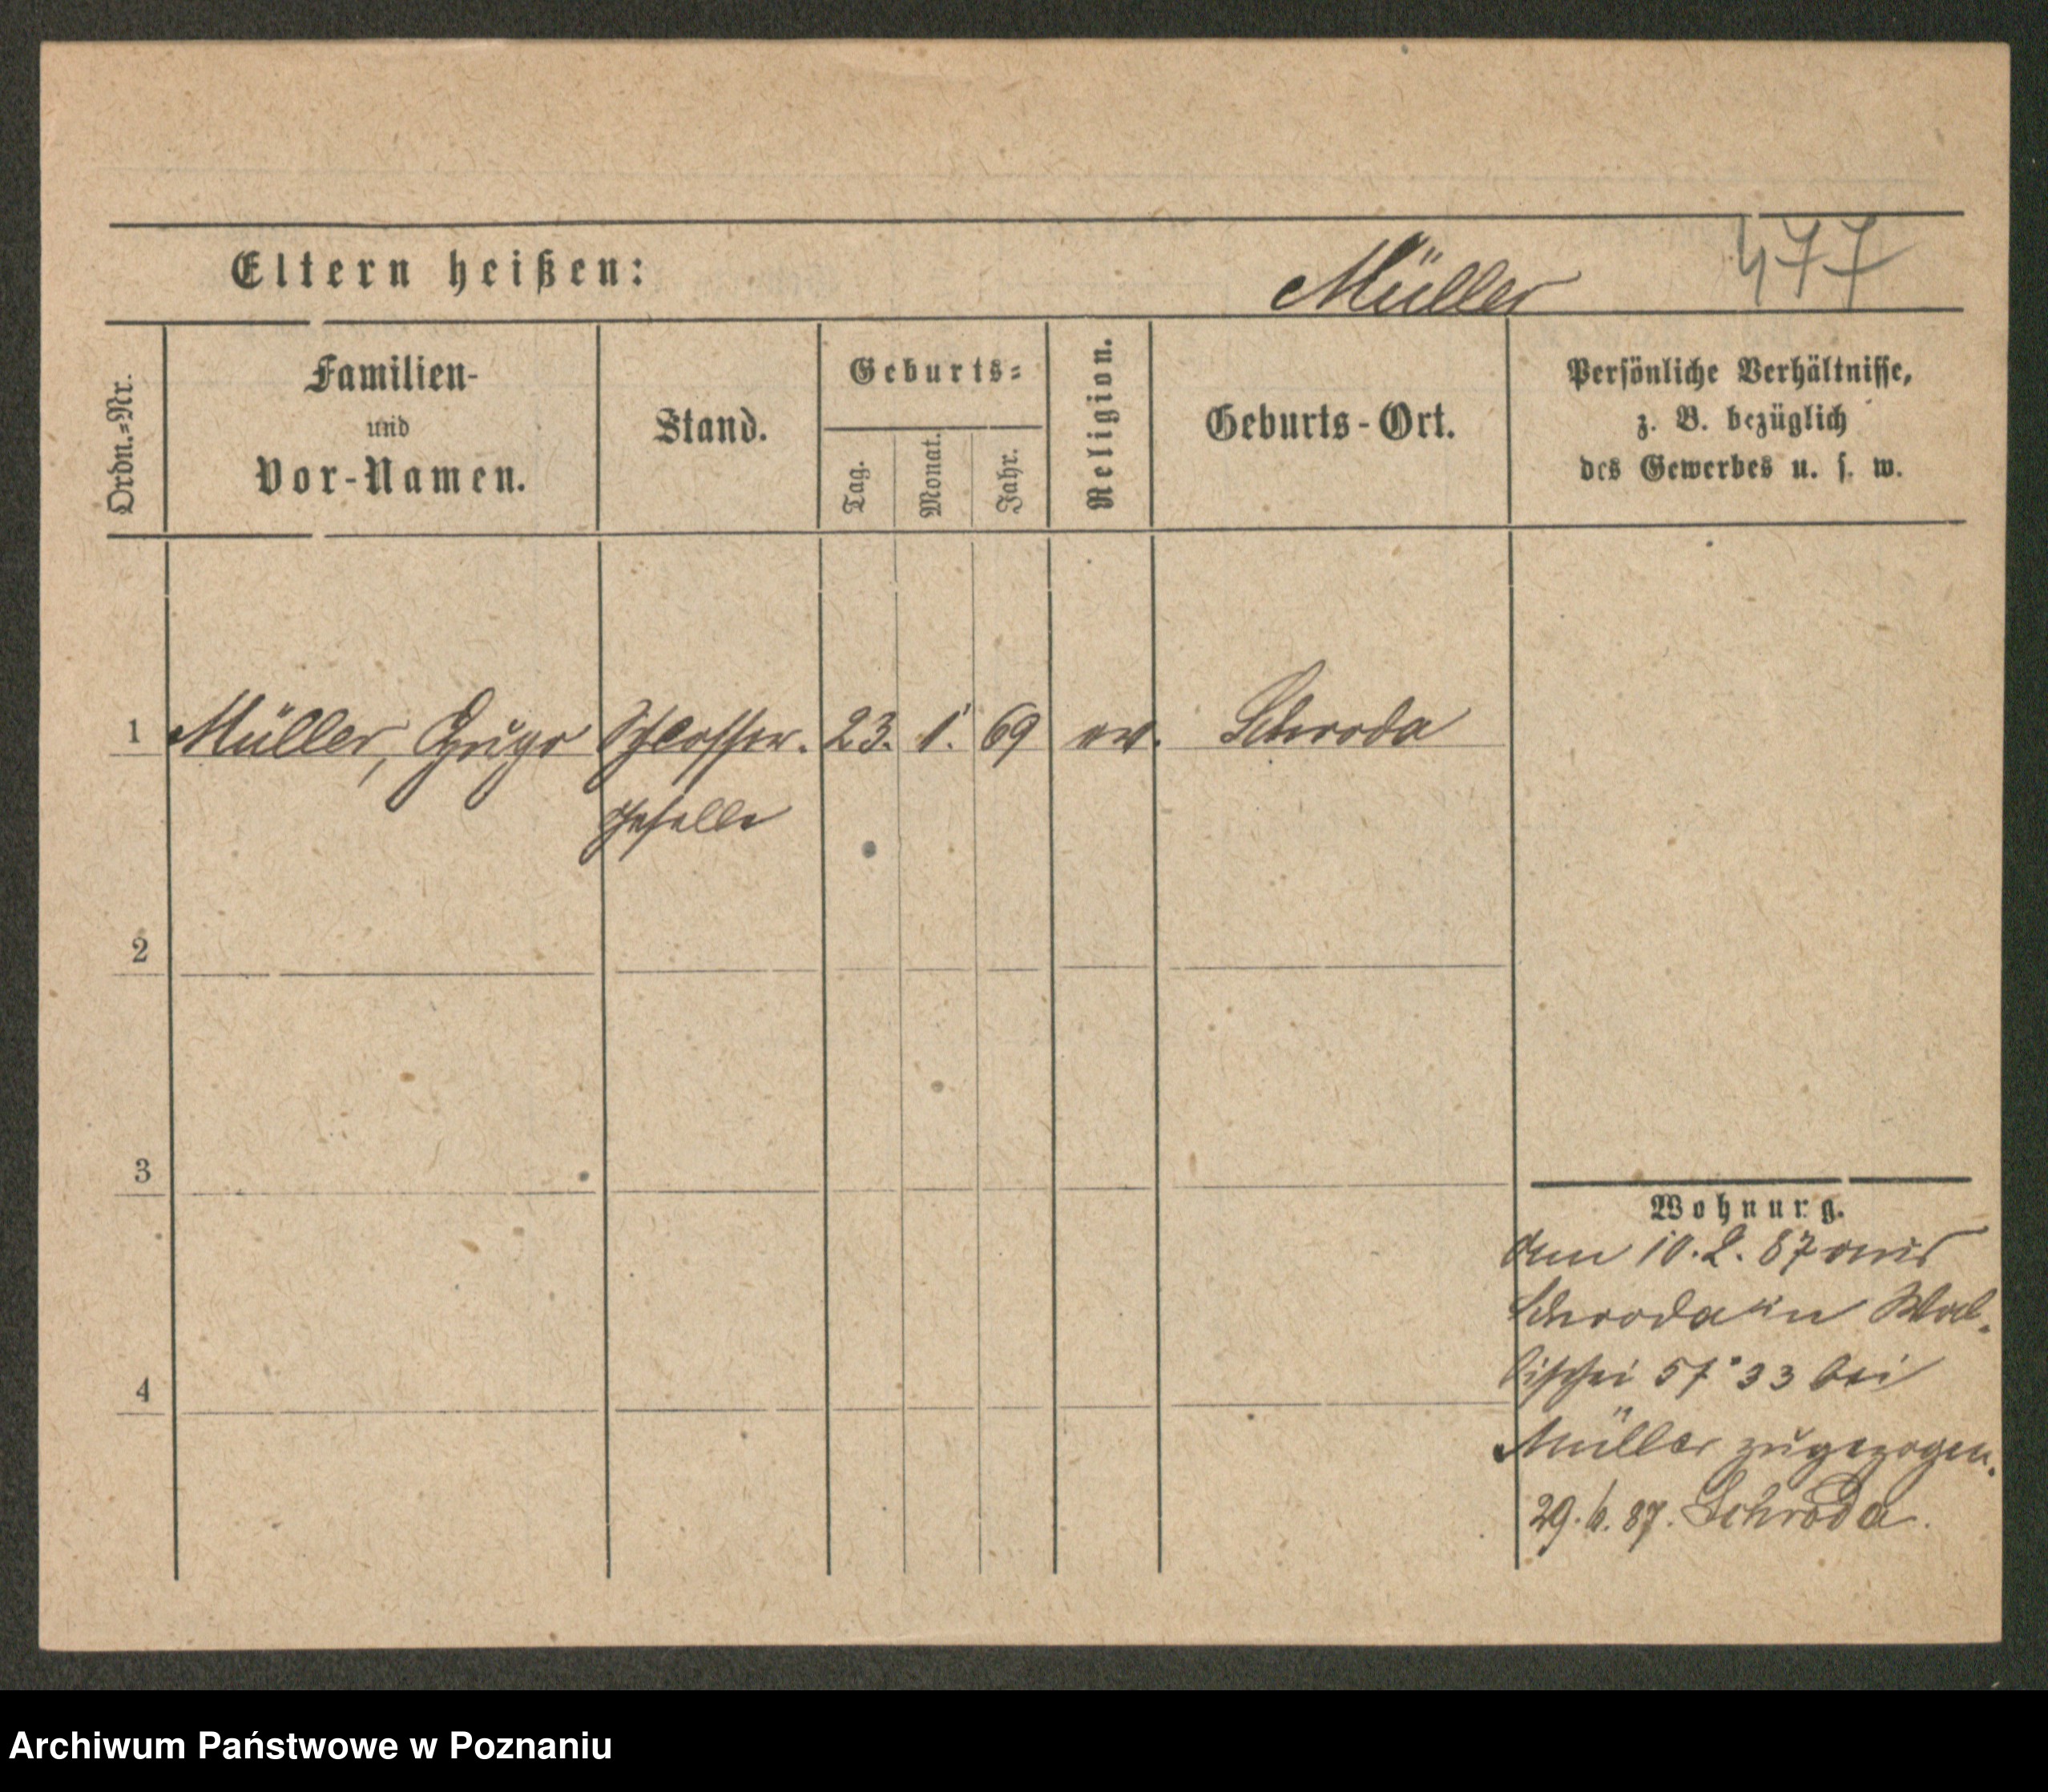 Eltern heißen:
Müller 477
Ordn.=Nr.
Familien-
und
Vor-Namen.
Stand.
Geburts=
Tag.
Monat.
Jahr.
Religion.
Geburts-Ort.
Persönliche Verhältnisse,
z. B. bezüglich
des Gewerbes u. s. w.
1 Müller, Hugo Schlosser. 23. 1. 69 ev. Schroda
geselle
2
3
4
Wohnung.
Am 10. 2. 87 aus
Schroda in Wal-
lischei 57 33 bei
Müller zugezogen.
29. 6. 87. Schroda.
Archiwum Państwowe w Poznaniu